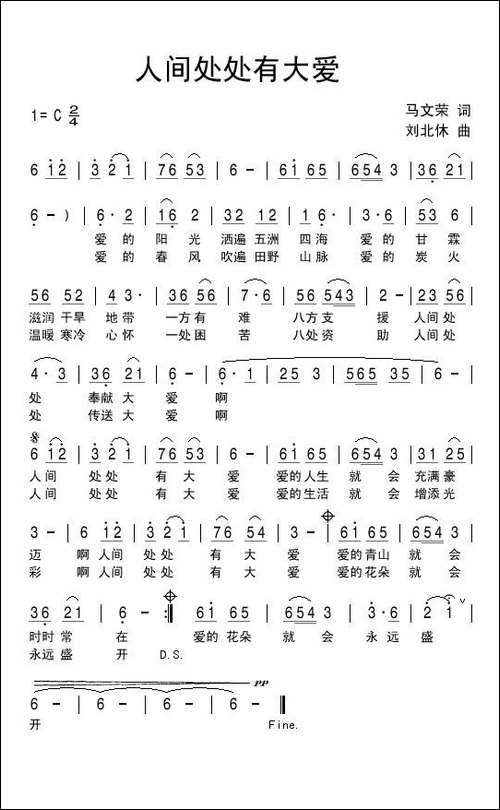 人间处处有大爱
1= C 2/4
马文荣 词
刘北休 曲
6 1 2 | 3 2 1 | 76 53 | 6 - | 61 65 | 654 3 | 36 21 |
6 - ) | 6· 2 | 16 2 | 32 12 | 1 6· | 3·6 | 53 6 |
爱的 阳光 洒遍五洲 四海 爱的 甘霖
爱的 春风 吹遍田野 山脉 爱的 炭火
56 52 | 4 3· | 36 56 | 7·6 | 56 543 | 2 - | 23 56 |
滋润干旱 地带 一方有 难 八方支 援 人间处
温暖寒冷 心怀 一处困 苦 八处资 助 人间处
4·3 | 36 21 | 6 - | 6· 123 | 25 3 | 565 35 | 6 - |
处 奉献大 爱 啊
处 传送大 爱 啊
6 12 | 3 2 1 | 76 53 | 6 - | 61 65 | 654 3 | 31 25 |
人间 处处 有大 爱 爱的人生 就会 充满豪
人间 处处 有大 爱 爱的生活 就会 增添光
3 - | 6 12 | 3 2 1 | 76 54 | 3 - | 61 65 | 654 3 |
迈 啊人间 处处 有大 爱 爱的青山 就会
彩 啊人间 处处 有大 爱 爱的花朵 就会
36 21 | 6 - :| 61 65 | 654 3 | 3·6 | 2 1 ∨ |
时时常 在 爱的花朵 就会 永远 盛
永远盛 开 D.S.
pp
6 - | 6 - | 6 - | 6 - ||
开 Fine.